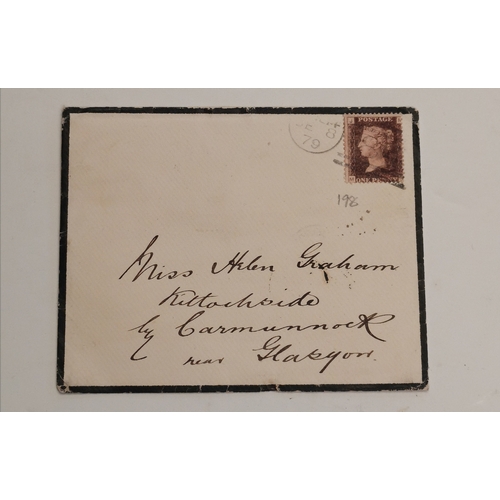 79
POSTAGE
ONE PENNY
198
Miss Helen Graham
Kittochside
by Carmunnock
near Glasgow.